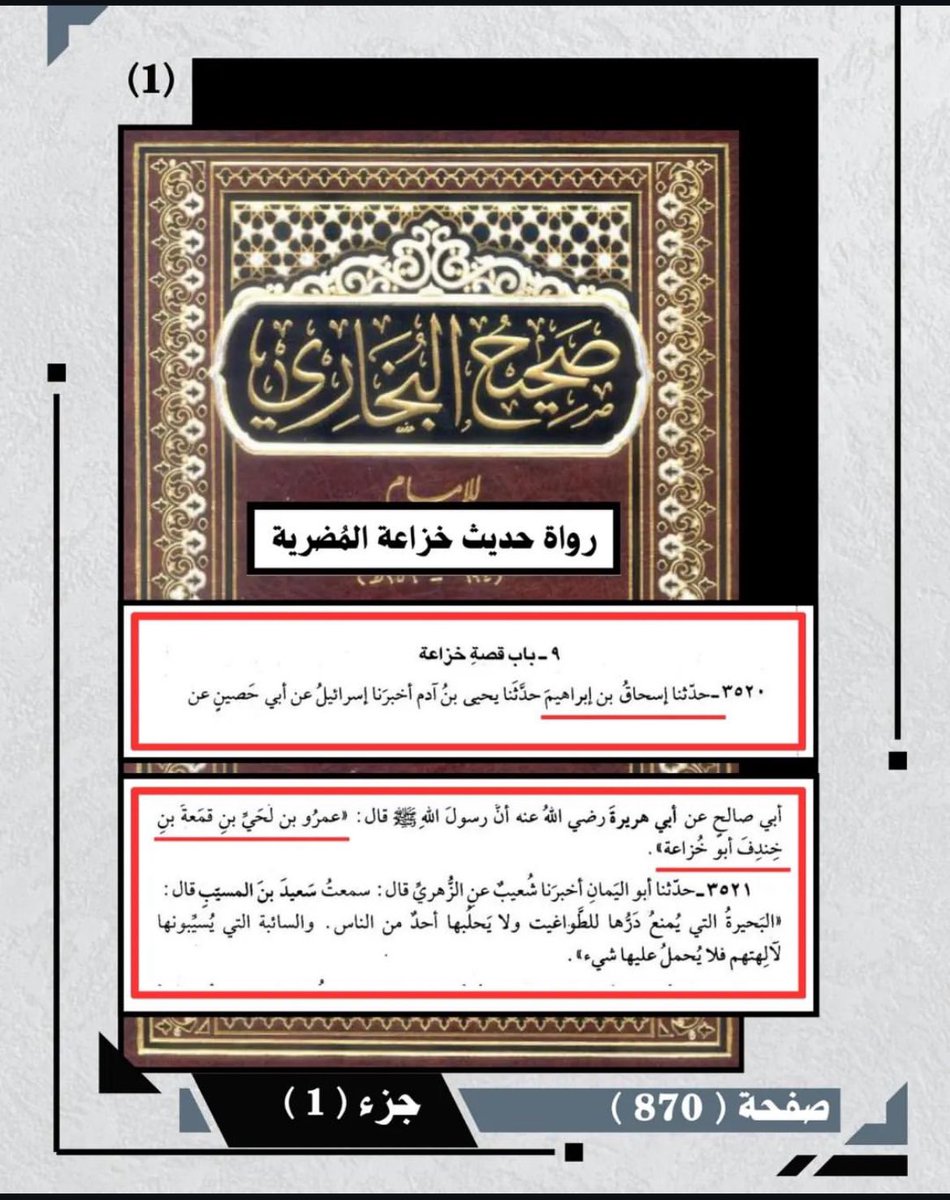 (1)
صَحِيحُ البُخَارِي
للإمام
رواة حديث خزاعة المُضرية
٩ ـ باب قصةِ خزاعة
٣٥٢٠ ـ حدّثنا إسحاقُ بن إبراهيمَ حدَّثَنا يحيى بنُ آدم أخبرَنا إسرائيلُ عن أبي حَصينٍ عن
أبي صالحٍ عن أبي هريرةَ رضي اللهُ عنه أنَّ رسولَ اللهِ ﷺ قال: «عمرُو بن لُحَيِّ بنِ قمَعةَ بنِ
خِندِفَ أبو خُزاعة».
٣٥٢١ ـ حدّثنا أبو اليَمانِ أخبرَنا شُعيبٌ عنِ الزُّهريِّ قال: سمعتُ سَعيدَ بنَ المسيّبِ قال:
«البَحيرةُ التي يُمنعُ دَرُّها للطَّواغيت ولا يَحلُبها أحدٌ من الناس. والسائبة التي يُسيِّبونها
لآلِهتهم فلا يُحملُ عليها شيء».
صفحة ( 870 )
جزء ( 1 )